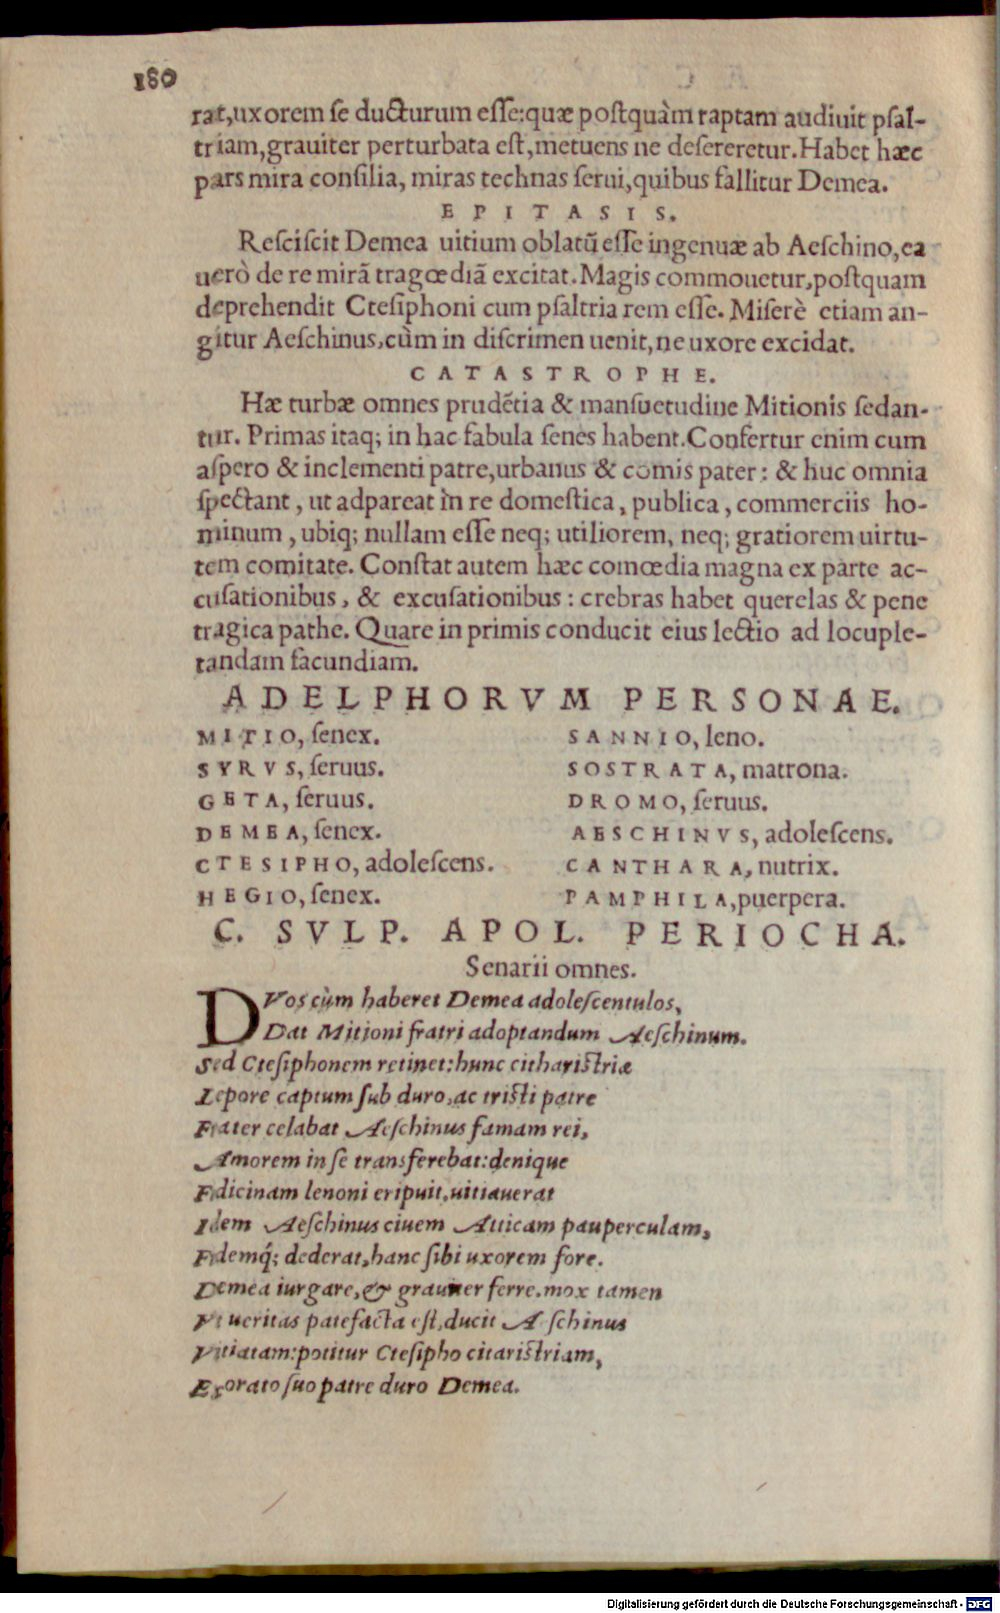 180
rat, uxorem se ducturum esse: quæ postquàm raptam audiuit psal-
triam, grauiter perturbata est, metuens ne desereretur. Habet hæc
pars mira consilia, miras technas serui, quibus fallitur Demea.
EPITASIS.
Resciscit Demea uitium oblatũ esse ingenuæ ab Aeschino, ea
uerò de re mirã tragœdiã excitat. Magis commouetur, postquam
deprehendit Ctesiphoni cum psaltria rem esse. Miserè etiam an-
gitur Aeschinus, cùm in discrimen uenit, ne uxore excidat.
CATASTROPHE.
Hæ turbæ omnes prudẽtia & mansuetudine Mitionis sedan-
tur. Primas itaq; in hac fabula senes habent. Confertur enim cum
aspero & inclementi patre, urbanus & comis pater: & huc omnia
spectant, ut adpareat in re domestica, publica, commerciis ho-
minum, ubiq; nullam esse neq; utiliorem, neq; gratiorem uirtu-
tem comitate. Constat autem hæc comœdia magna ex parte ac-
cusationibus, & excusationibus: crebras habet querelas & pene
tragica pathe. Quare in primis conducit eius lectio ad locuple-
tandam facundiam.
ADELPHORVM PERSONAE.
MITIO, senex. SANNIO, leno.
SYRVS, seruus. SOSTRATA, matrona.
GETA, seruus. DROMO, seruus.
DEMEA, senex. AESCHINVS, adolescens.
CTESIPHO, adolescens. CANTHARA, nutrix.
HEGIO, senex. PAMPHILA, puerpera.
C. SVLP. APOL. PERIOCHA.
Senarii omnes.
DVos cùm haberet Demea adolescentulos,
Dat Mitioni fratri adoptandum Aeschinum.
Sed Ctesiphonem retinet: hunc citharistriæ
Lepore captum sub duro, ac tristi patre
Frater celabat Aeschinus famam rei,
Amorem in se transferebat: denique
Fidicinam lenoni eripuit, uitiauerat
Idem Aeschinus ciuem Atticam pauperculam,
Fidemq́; dederat, hanc sibi uxorem fore.
Demea iurgare, & grauiter ferre. mox tamen
Vt ueritas patefacta est, ducit Aeschinus
Vitiatam: potitur Ctesipho citaristriam,
Exorato suo patre duro Demea.
Digitalisierung gefördert durch die Deutsche Forschungsgemeinschaft - DFG